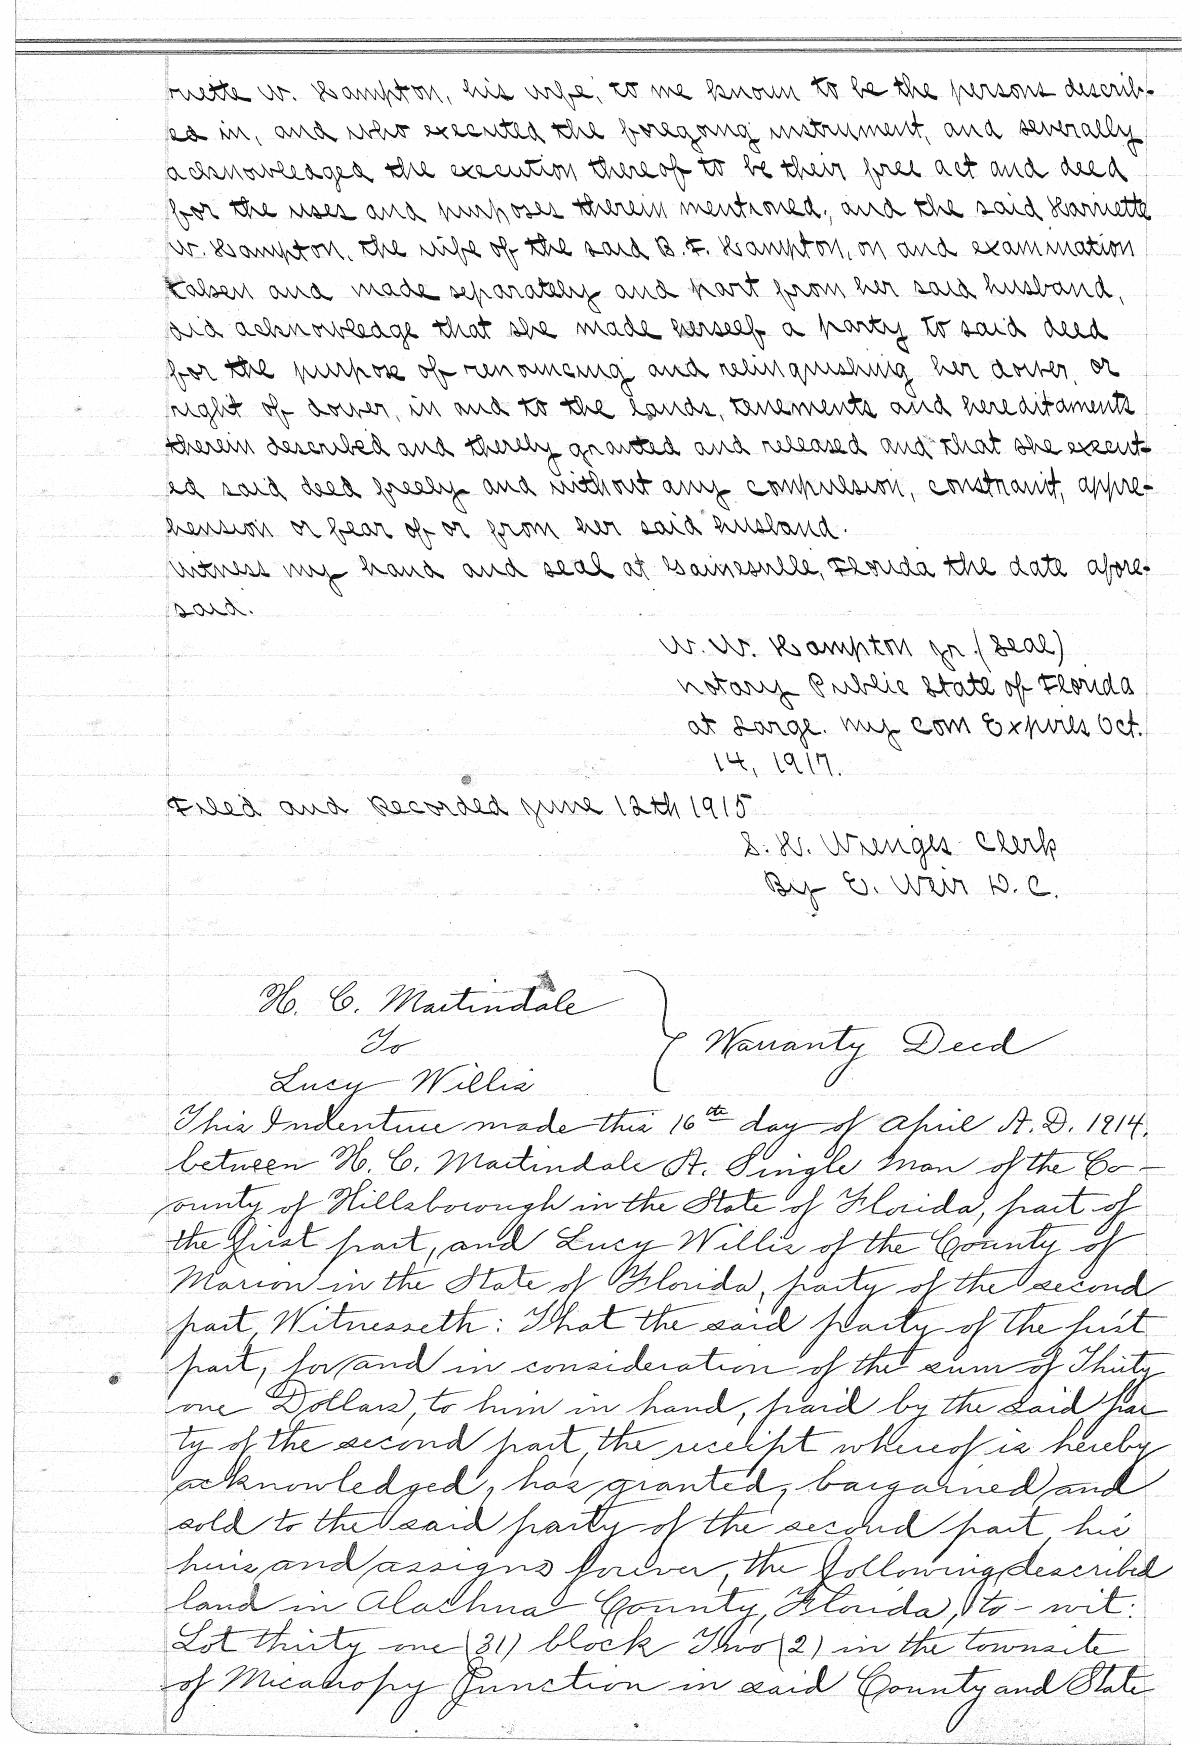 riette W. Hampton, his wife, to me known to be the persons describ-
ed in, and who executed the foregoing instrument, and severally
acknowledged the execution thereof to be their free act and deed
for the uses and purposes therein mentioned; and the said Harriette
W. Hampton, the wife of the said B. F. Hampton, on and examination
taken and made separately and part from her said husband,
did acknowledge that she made herself a party to said deed
for the purpose of renouncing and relinquishing her dower, or
right of dower, in and to the lands, tenements and hereditaments
therein described and thereby granted and released and that she execut-
ed said deed freely and without any compulsion, constraint, appre-
hension or fear of or from her said husband.
Witness my hand and seal at Gainesville, Florida the date afore-
said.
W. W. Hampton Jr. (Seal)
Notary Public State of Florida
at Large. My Com Expires Oct.
14, 1917.
Filed and Recorded June 12th 1915
S. H. Wienges Clerk
By E. Weir D. C.
H. C. Martindale
To
Lucy Willis
Warranty Deed
This Indenture made this 16th day of April A. D. 1914.
between H. C. Martindale A. Single man of the Co-
ounty of Hillsborough in the State of Florida, part of
the first part, and Lucy Willis of the County of
Marion in the State of Florida, party of the second
part, Witnesseth: That the said party of the first
part, for and in consideration of the sum of Thirty
one Dollars, to him in hand, paid by the said par
ty of the second part, the receipt whereof is hereby
acknowledged, has granted, bargained and
sold to the said party of the second part, his
heirs and assigns forever, the following described
land in Alachua County, Florida, to-wit:
Lot thirty one (31) block Two (2) in the townsite
of Micanopy Junction in said County and State